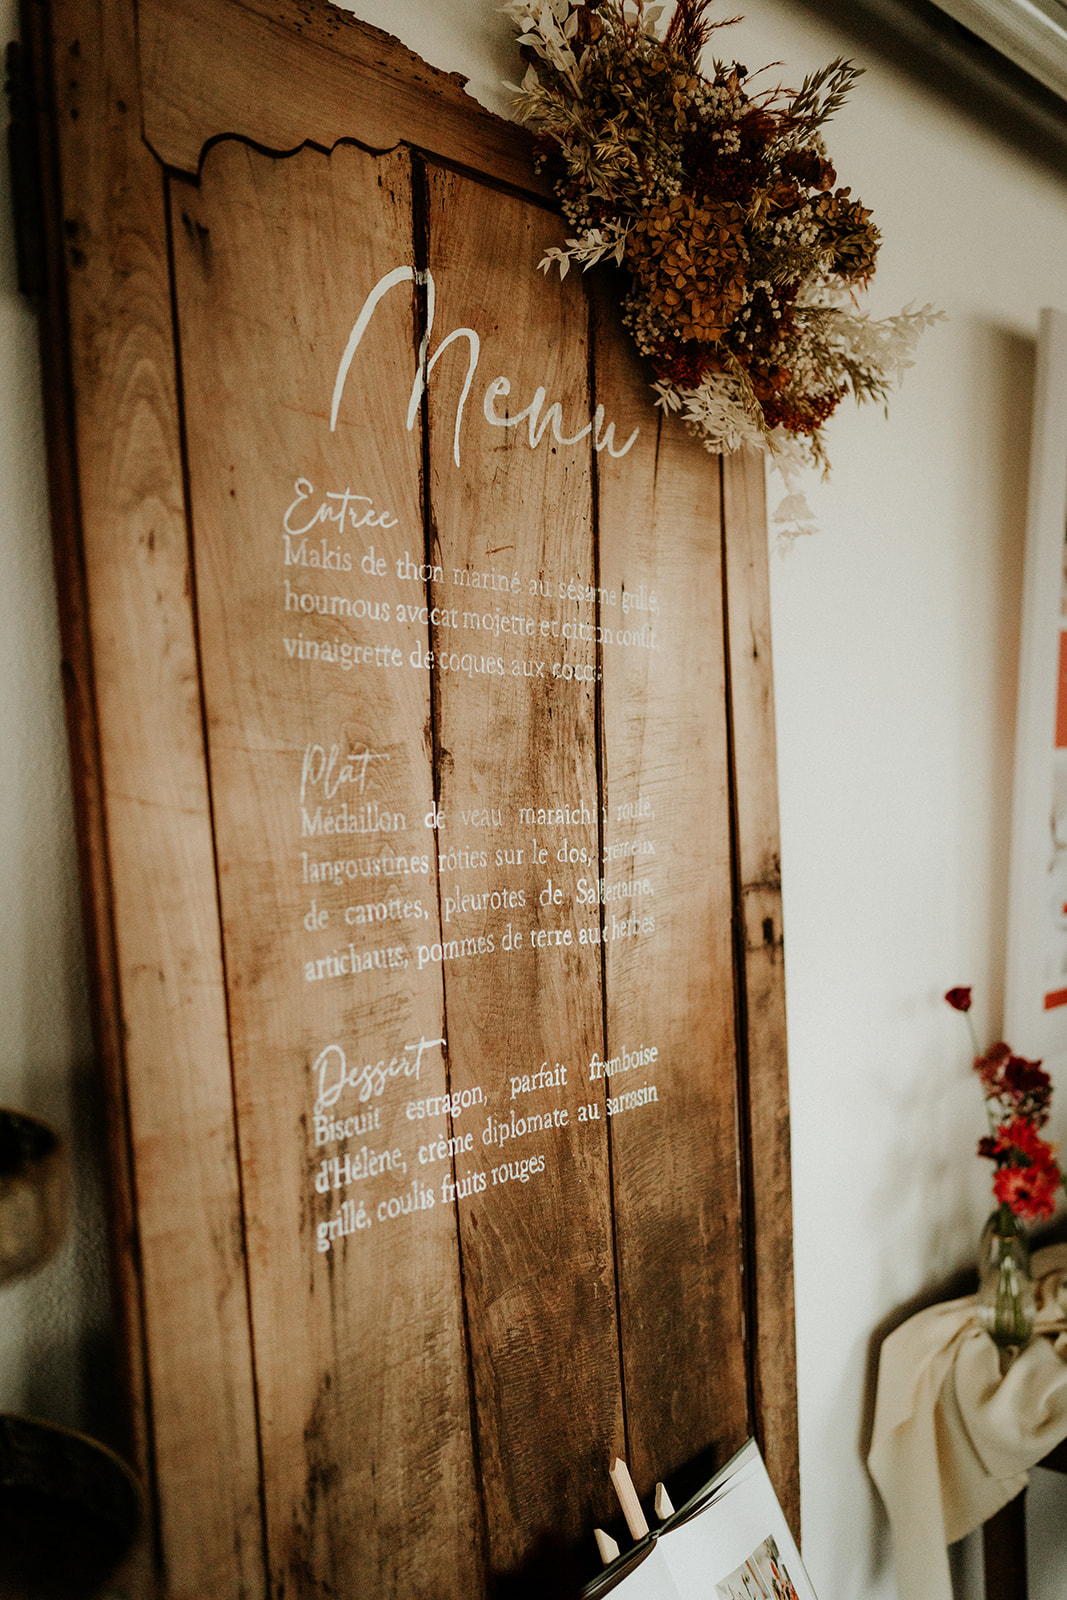 Menu
Entree
Makis de thon mariné au sésame grillé,
houmous avocat mojette et citron confit,
vinaigrette de coques aux cocos
Plat
Médaillon de veau maraîchin roulé,
langoustines rôties sur le dos, crémeux
de carottes, pleurotes de Sallertaine,
artichauts, pommes de terre aux herbes
Dessert
Biscuit estragon, parfait framboise
d'Hélène, crème diplomate au sarrasin
grillé, coulis fruits rouges